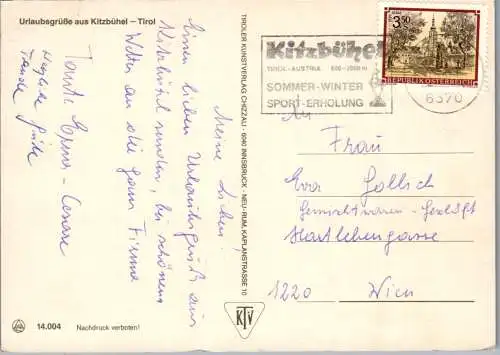 Urlaubsgrüße aus Kitzbühel – Tirol
Meine Lieben!
Einen lieben Urlaubsgruß aus
Kitzbühel senden, bei schönem
Wetter an die ganze Firma
Tante Erna - Cesare
Herzliche Grüße
TIROLER KUNSTVERLAG CHIZZALI · 6040 INNSBRUCK - NEU-RUM, KAPLANSTRASSE 10
KTV
14.004
Nachdruck verboten!
Kitzbühel
TIROL-AUSTRIA 800-2000 m
SOMMER-WINTER
SPORT-ERHOLUNG
6370
3.50
REPUBLIK ÖSTERREICH
An
Frau
Eva Gollisch
Gemischtwaren-Geschäft
Hartlebengasse
1220 Wien